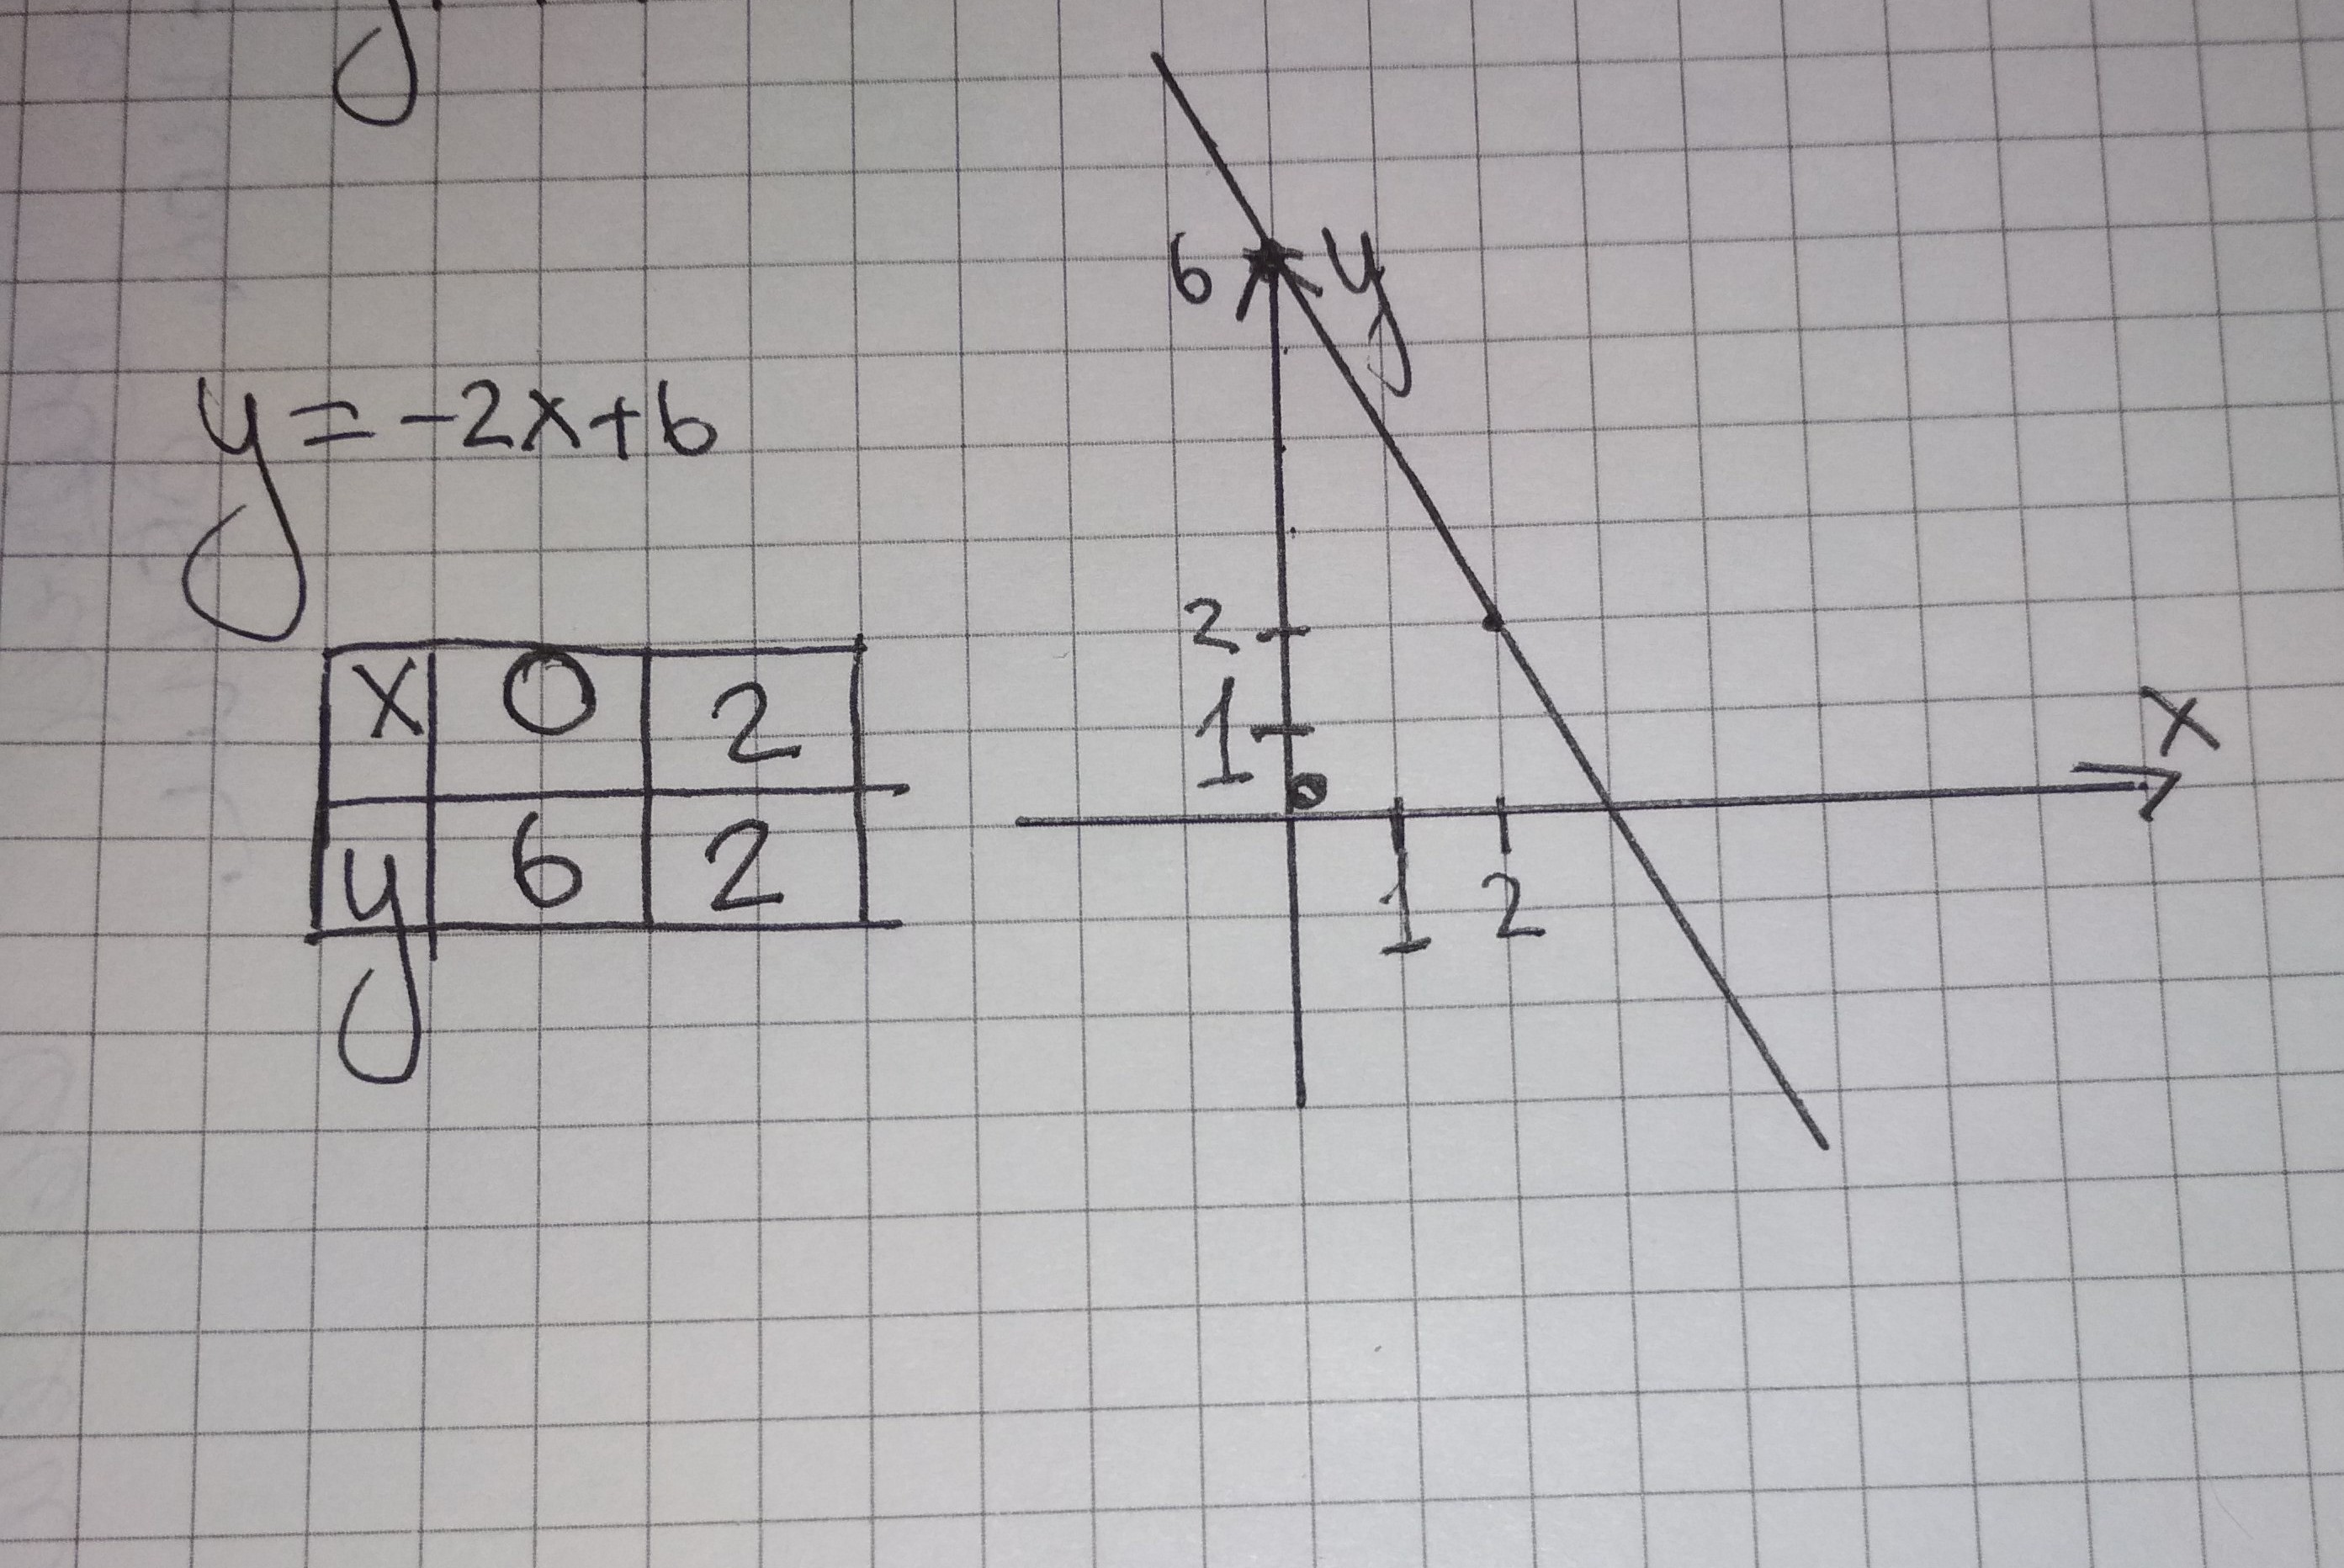 y = -2x+6
x 0 2
y 6 2
6 y
2
1
0
x
1 2